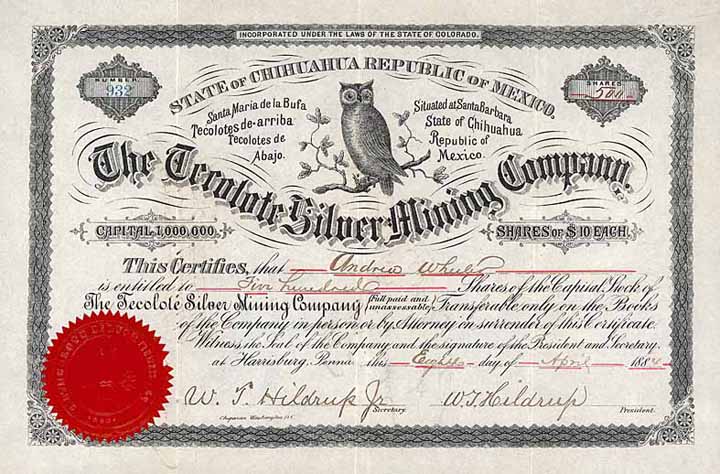 INCORPORATED UNDER THE LAWS OF THE STATE OF COLORADO.
NUMBER
932
SHARES
500
STATE OF CHIHUAHUA REPUBLIC OF MEXICO.
Santa Maria de la Bufa
Tecolotes-de-arriba
Tecolotes de
Abajo.
Situated at Santa Barbara
State of Chihuahua
Republic of
Mexico.
The Tecolote Silver Mining Company.
CAPITAL 1,000,000.
SHARES OF $10 EACH.
This Certifies, that Andrew
is entitled to Five hundred Shares of the Capital Stock of
The Tecolote Silver Mining Company (Full paid and unassessable) Transferable only on the Books
of the Company in person or by Attorney on surrender of this Certificate.
Witness, the Seal of the Company and the signature of the President and Secretary.
at Harrisburg, Penna. this Eighth day of April 1884
W. T. Hildrup Jr.
Secretary.
W. T. Hildrup
President.